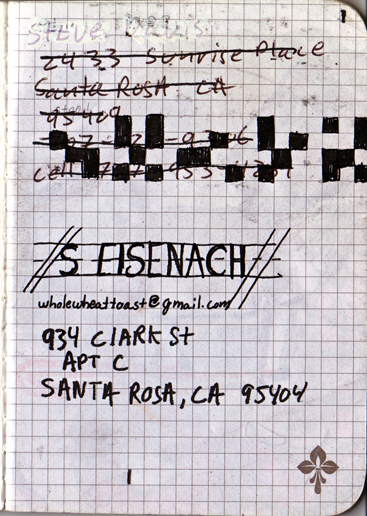 1
STEVE
2433 Sunrise Place
Santa Rosa CA
95409
cell
S EISENACH
wholewheattoast@gmail.com
934 CLARK St
APT C
SANTA ROSA, CA 95404
1